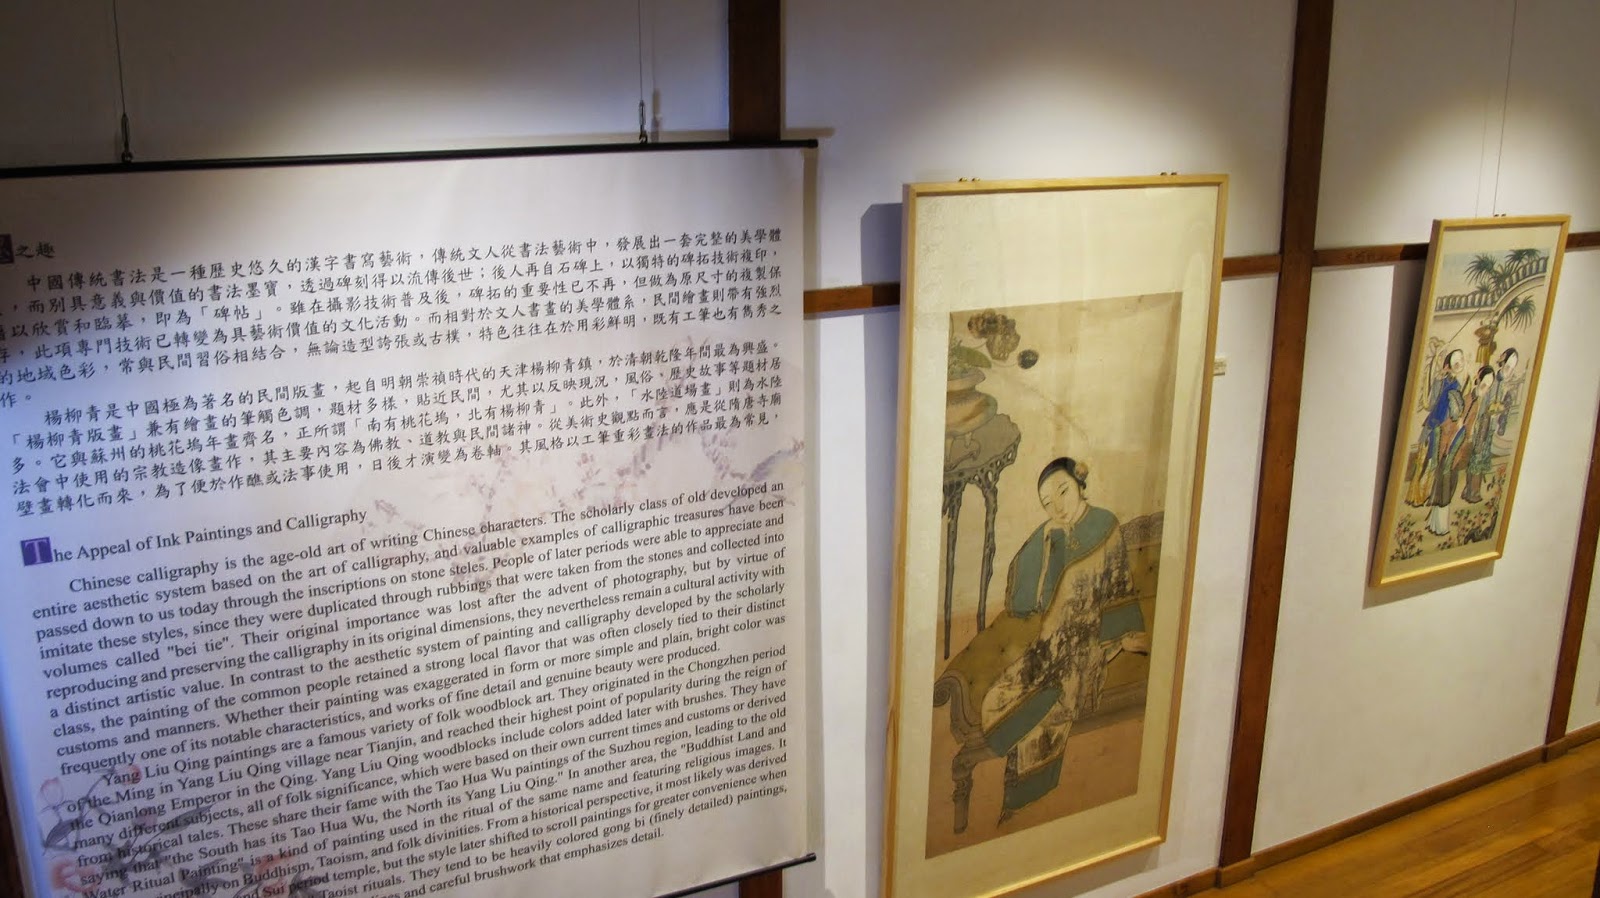 之趣
中國傳統書法是一種歷史悠久的漢字書寫藝術，傳統文人從書法藝術中，發展出一套完整的美學體
，而別具意義與價值的書法墨寶，透過碑刻得以流傳後世；後人再自石碑上，以獨特的碑拓技術複印，
以欣賞和臨摹，即為「碑帖」。雖在攝影技術普及後，碑拓的重要性已不再，但做為原尺寸的複製保
存，此項專門技術已轉變為具藝術價值的文化活動。而相對於文人書畫的美學體系，民間繪畫則帶有強烈
的地域色彩，常與民間習俗相結合，無論造型誇張或古樸，特色往往在於用彩鮮明，既有工筆也有雋秀之
作。
楊柳青是中國極為著名的民間版畫，起自明朝崇禎時代的天津楊柳青鎮，於清朝乾隆年間最為興盛。
「楊柳青版畫」兼有繪畫的筆觸色調，題材多樣，貼近民間，尤其以反映現況，風俗，歷史故事等題材居
多。它與蘇州的桃花塢年畫齊名，正所謂「南有桃花塢，北有楊柳青」。此外，「水陸道場畫」則為水陸
法會中使用的宗教造像畫作，其主要內容為佛教、道教與民間諸神。從美術史觀點而言，應是從隋唐寺廟
壁畫轉化而來，為了便於作醮或法事使用，日後才演變為卷軸。其風格以工筆重彩畫法的作品最為常見，
The Appeal of Ink Paintings and Calligraphy
Chinese calligraphy is the age-old art of writing Chinese characters. The scholarly class of old developed an
entire aesthetic system based on the art of calligraphy, and valuable examples of calligraphic treasures have been
passed down to us today through the inscriptions on stone steles. People of later periods were able to appreciate and
imitate these styles, since they were duplicated through rubbings that were taken from the stones and collected into
volumes called "bei tie". Their original importance was lost after the advent of photography, but by virtue of
reproducing and preserving the calligraphy in its original dimensions, they nevertheless remain a cultural activity with
a distinct artistic value. In contrast to the aesthetic system of painting and calligraphy developed by the scholarly
class, the painting of the common people retained a strong local flavor that was often closely tied to their distinct
customs and manners. Whether their painting was exaggerated in form or more simple and plain, bright color was
frequently one of its notable characteristics, and works of fine detail and genuine beauty were produced.
Yang Liu Qing paintings are a famous variety of folk woodblock art. They originated in the Chongzhen period
of the Ming in Yang Liu Qing village near Tianjin, and reached their highest point of popularity during the reign of
the Qianlong Emperor in the Qing. Yang Liu Qing woodblocks include colors added later with brushes. They have
many different subjects, all of folk significance, which were based on their own current times and customs or derived
from historical tales. These share their fame with the Tao Hua Wu paintings of the Suzhou region, leading to the old
saying that "the South has its Tao Hua Wu, the North its Yang Liu Qing." In another area, the "Buddhist Land and
Water Ritual Painting" is a kind of painting used in the ritual of the same name and featuring religious images. It
principally on Buddhism, Taoism, and folk divinities. From a historical perspective, it most likely was derived
and Sui period temple, but the style later shifted to scroll paintings for greater convenience when
Taoist rituals. They tend to be heavily colored gong bi (finely detailed) paintings,
lines and careful brushwork that emphasizes detail.